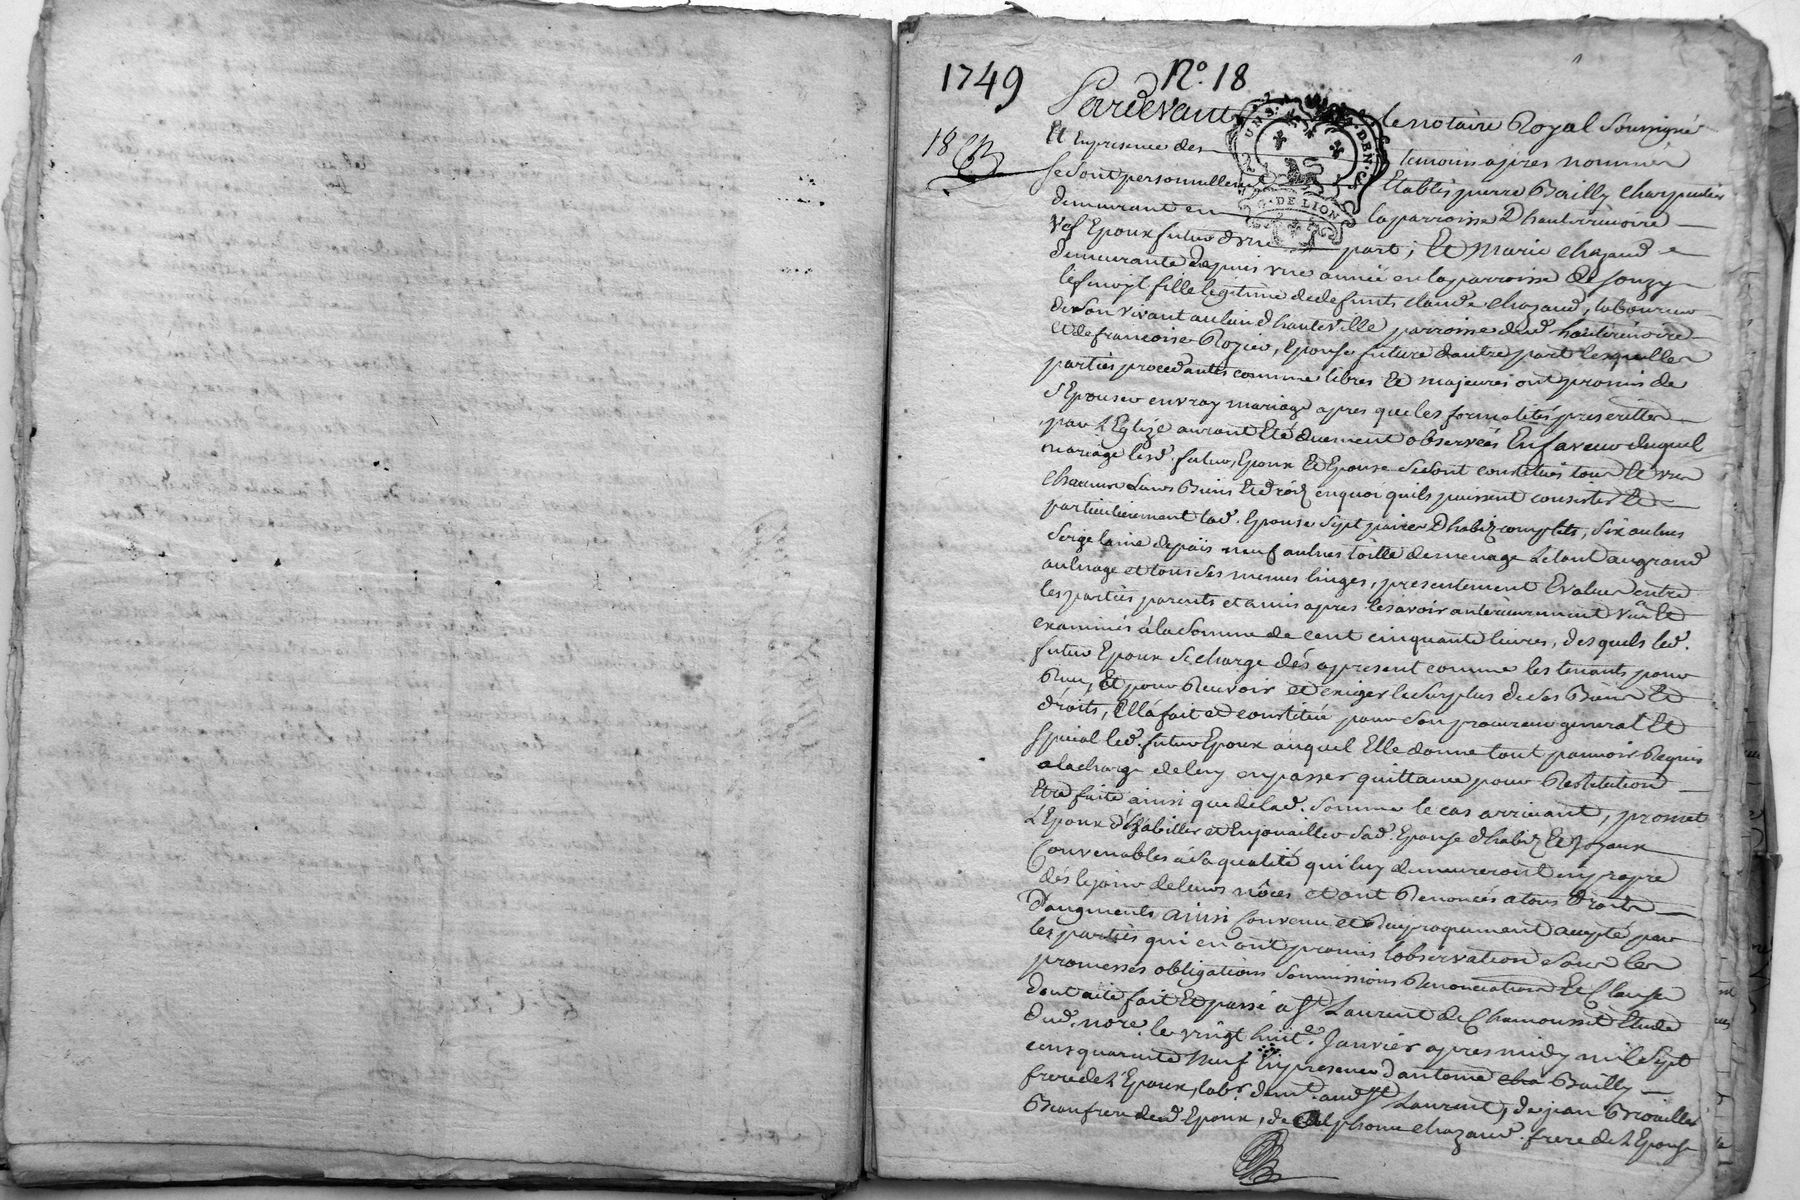 1749 N.º 18
18
Pardevant le notaire Royal Soussigné
Et En presence des temoins apres nommés
se sont personnellemt Etablis pierre Bailly charpentier
demeurant en la parroisse D'hauterivoire
Vef Epoux futur d'une part ; Et Marie chazaud
demeurante depuis une année en la parroisse de Souzy
fille legitime de defunts claude chazaud, laboureur
de son vivant au lieu d'hauteville parroisse dud. hauterivoire
et de francoise Rozier, Epouse future d'autre part lesquelles
parties procedantes comme libres Et majeures ont promis de
s'Epouser en vray mariage apres que les formalités prescrittes
par L'Eglize auront Eté duement observées En faveur duquel
mariage lesd. futurs Epoux Et Epouse se sont constitués tous Et un
chacuns leurs Biens Et droits en quoi qu'ils puissent consister Et
particulierement lad. Epouse sept paires D'habitz complets, six aulnes
serge laine depaïs neuf aulnes toille de menage Le tout au grand
aulnage et tous ses menus linges, presentement Evalués entre
les parties parents et amis apres les avoir anterieurement vûs Et
examinés à la somme de cent cinquante livres, desquels led.
futur Epoux se charge dés apresent comme les tenants pour
Reçu, Et pour Recevoir et exiger le surplus de ses Biens Et
droits, Ell'a fait et constitué pour son procureur general Et
special led. futur Epoux auquel Elle donne tout pouvoir Requis
a la charge de luy en passer quittance pour Restitution
Etre faite ainsi que de lad. somme le cas arrivant, promet
L'Epoux d'habiller et Enjouailler sad. Epouse d'habitz Et Joyaux
Convenables à sa qualité qui luy demeureront en propre
dés le jour de leurs nôces et ont Renoncés a tous droits
D'augments ainsi Convenu et Reciproquement accepté par
les parties qui en ont promis l'observation sous les
promesses obligations soumissions Renonciations Et Clauses
dont acte fait Et passé a St. Laurent de Chamousset Etude
dud. nore. le vingt huite. Janvier apres midy mil sept
cens quarante Neuf En presence d'antoine cha Bailly
frere de L'Epoux, labr. demt. aud. St Laurent, de jean
Beaufrere dud Epoux, de chazaud. frere de L'Epouse
G. DE LION